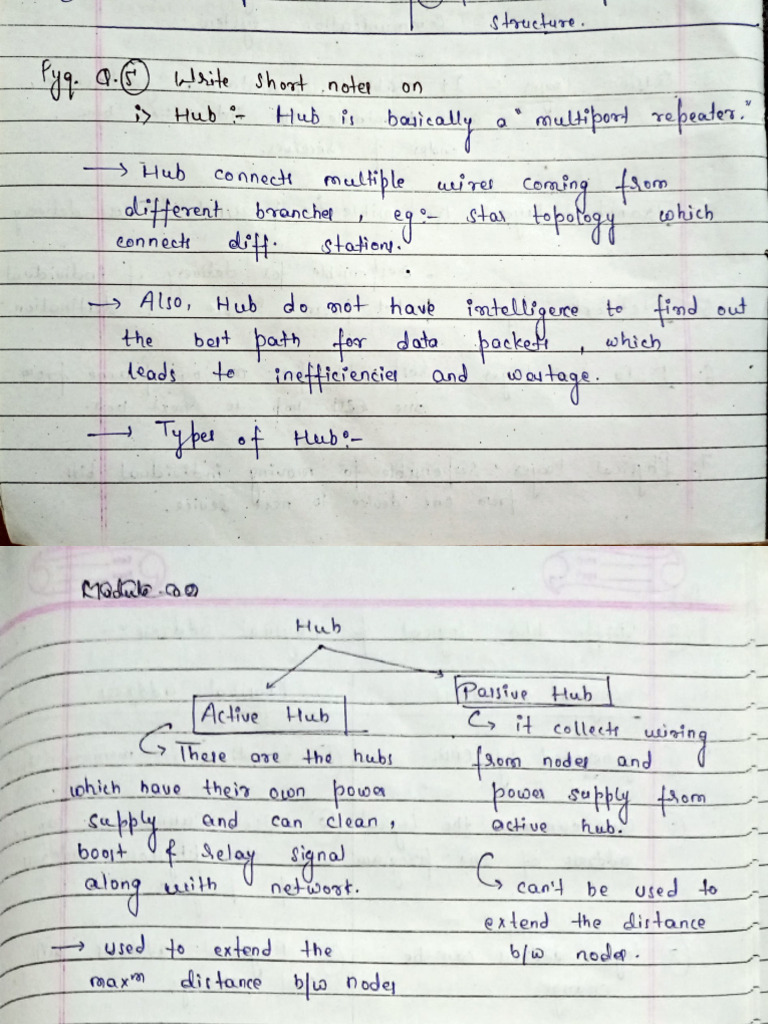 structure.
Pyq. Q.5 Write short notes on
i> Hub :- Hub is basically a "multiport repeater."
→ Hub connects multiple wires coming from
different branches, eg:- star topology which
connects diff. stations.
→ Also, Hub do not have intelligence to find out
the best path for data packets, which
leads to inefficiencies and wastage.
→ Types of Hub:-
Module-
Hub
Active Hub
These are the hubs
which have their own power
supply and can clean,
boost & relay signal
along with network.
→ used to extend the
maxm distance b/w nodes
Passive Hub
it collects wiring
from nodes and
power supply from
active hub.
can't be used to
extend the distance
b/w nodes.